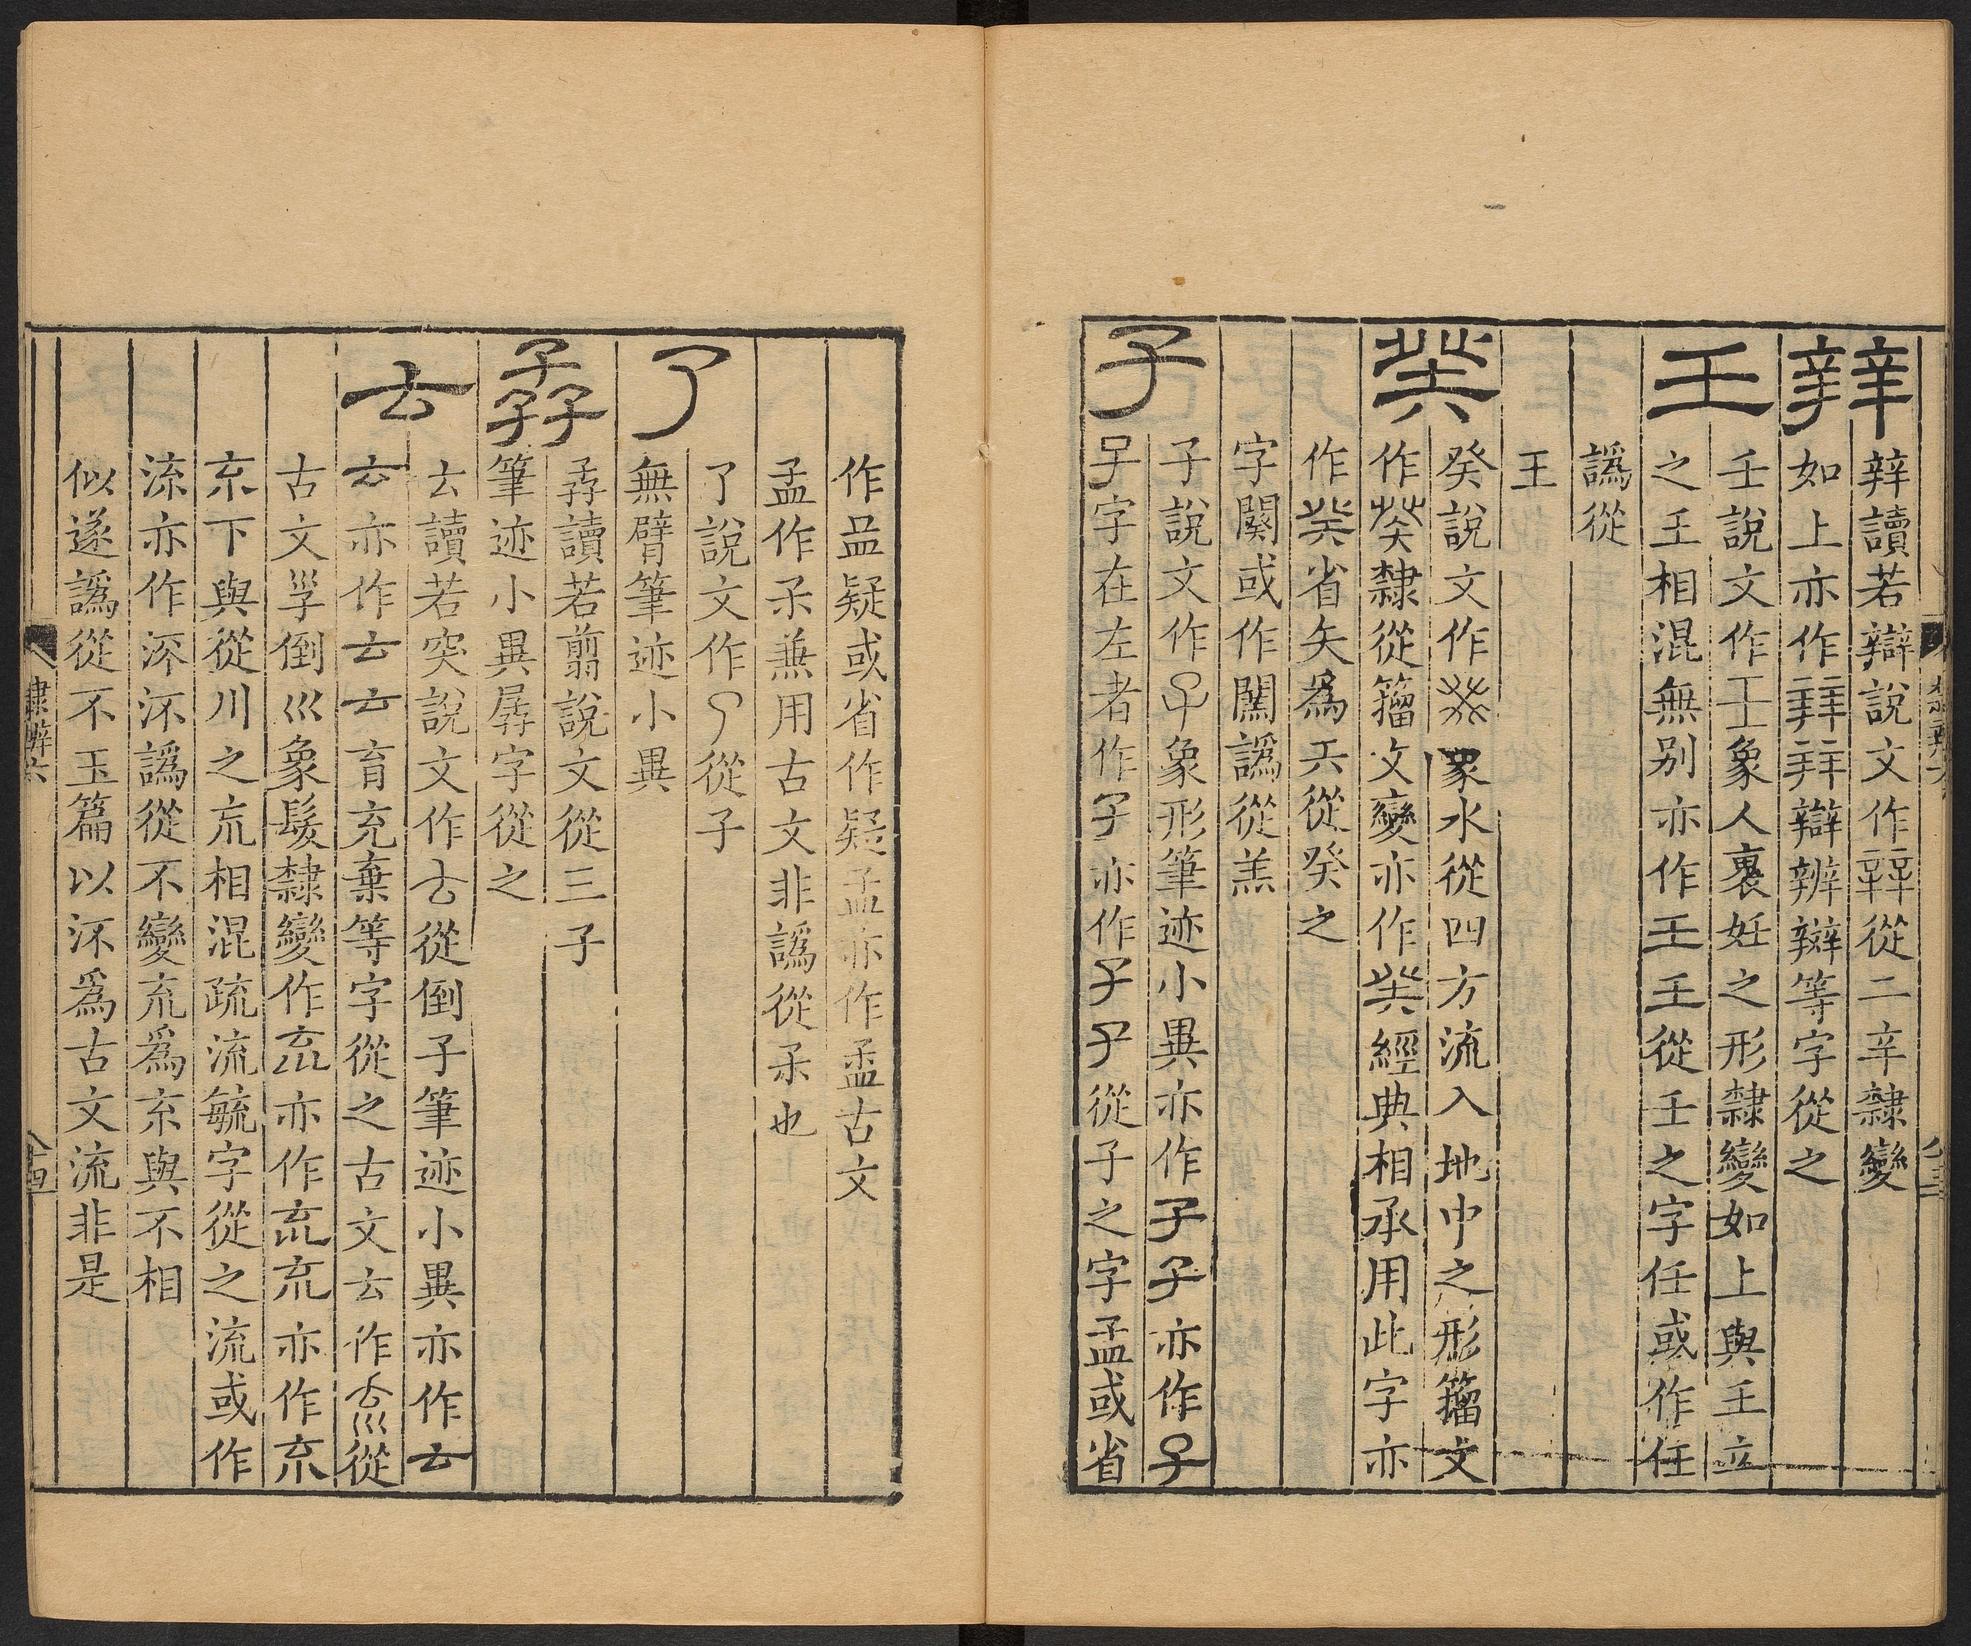 辡
辡讀若辯說文作辡從二辛隸變
如上亦作辯辨辧等字從之
壬
壬說文作壬象人裹妊之形隸變如上與王立
之王相混無别亦作王王從壬之字任或作任
譌從
王
癸
癸說文作癸象水從四方流入地中之形籀文
作癸隸從籀文變亦作癸經典相承用此字亦
作癸省矢爲天從癸之
字闋或作闋譌從羔
子
子說文作子象形筆迹小異亦作子子亦作子
子字在左者作孑亦作子子從子之字孟或省
作皿疑或省作疑孟亦作孟古文
孟作𣎼兼用古文非譌從𣎼也
了
了說文作了從子
無臂筆迹小異
孨
孨讀若翦說文從三子
筆迹小異孱字從之
𠫓
𠫓讀若突說文作𠫓從倒子筆迹小異亦作𠫓
𠫓亦作𠫓𠫓育充棄等字從之古文𠫓作㐬從
古文㜽倒巛象髮隸變作㐬亦作㐬㐬亦作㐬
下與從川之巟相混疏流毓字從之流或作
流亦作㳅譌從不變㐬爲與不相
似遂譌從不玉篇以㳅爲古文流非是
隸辨六